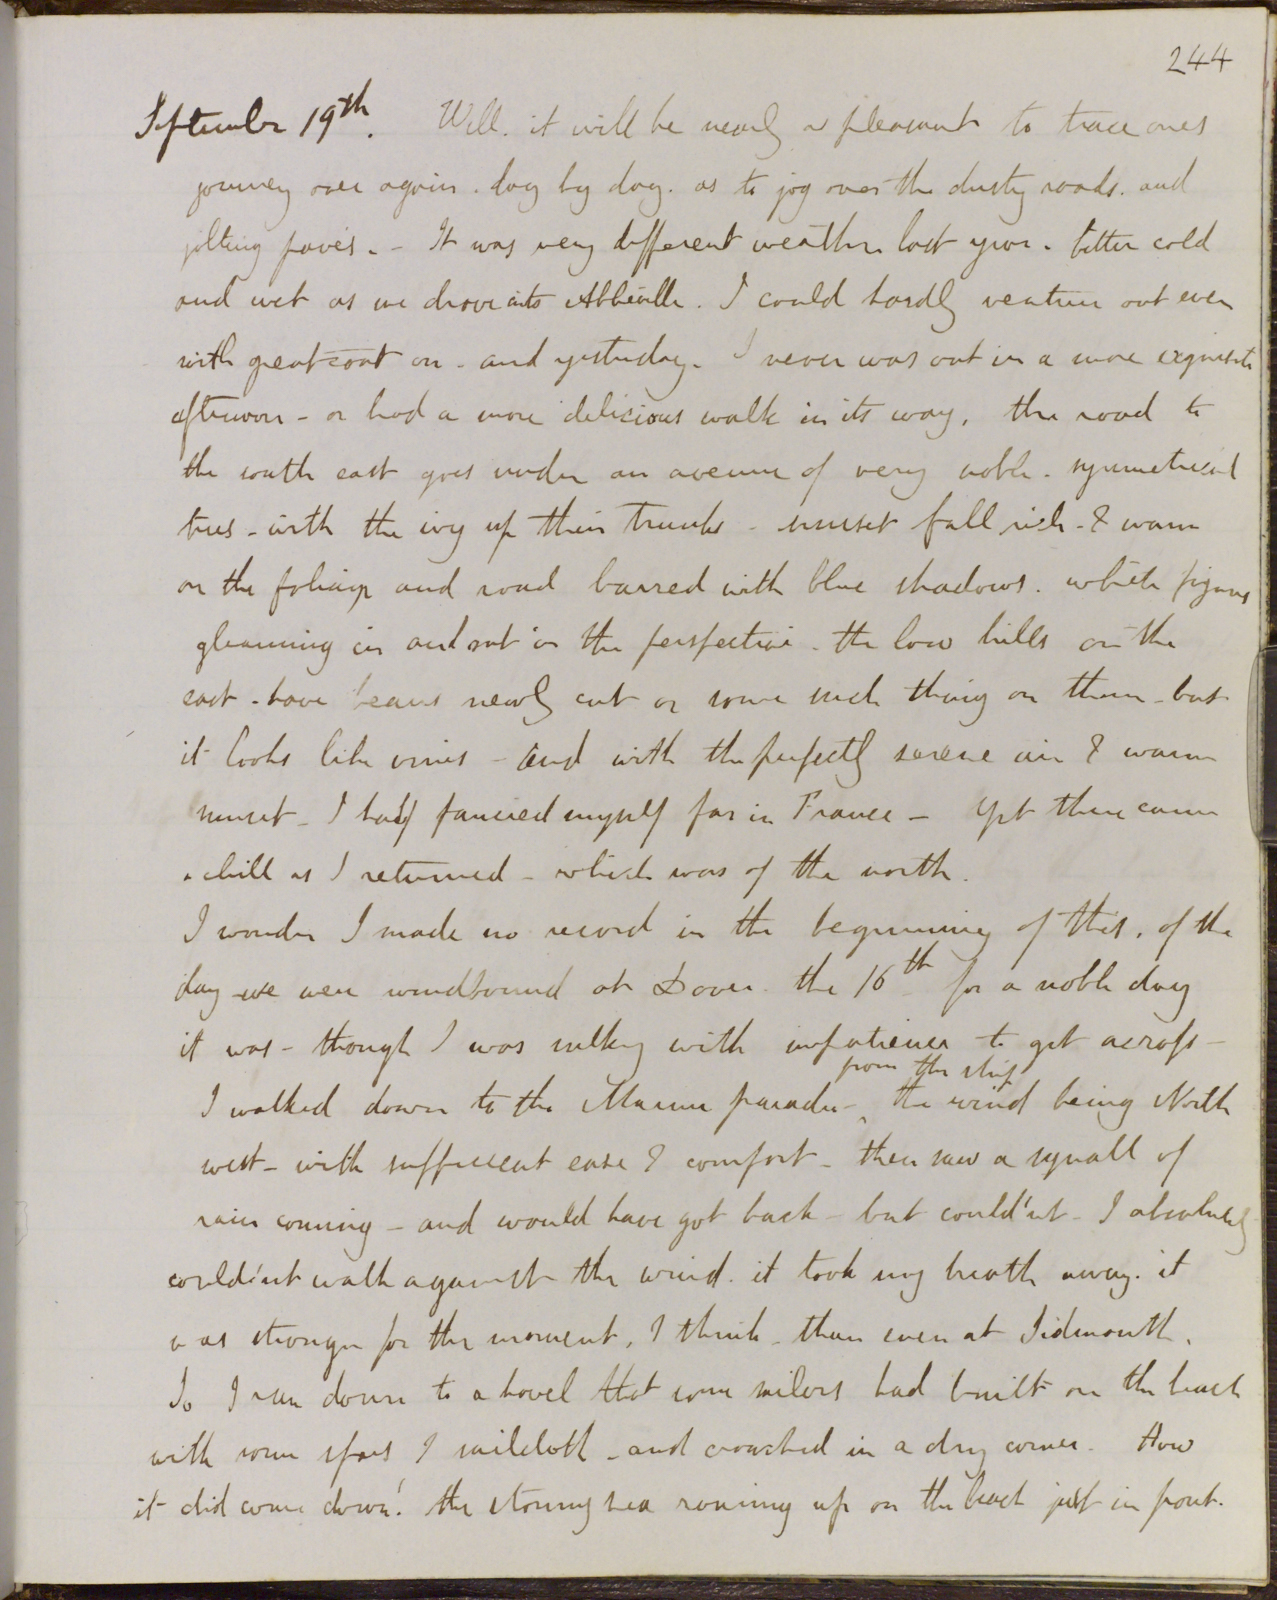 244
September 19th. Well. it will be nearly as pleasant to trace ones
journey over again. day by day. as to jog over the dusty roads. and
jolting pavés. - It was very different weather last year. bitter cold
and wet as we drove into Abbeville. I could hardly venture out even
with greatcoat on - and yesterday. I never was out in a more exquisite
afternoon - or had a more delicious walk in its way, the road to
the south east goes under an avenue of very noble. symmetrical
trees - with the ivy up their trunks - sunset fall rich - & warm
on the foliage and road barred with blue shadows. white figures
gleaming in and out in the perspective. the low hills on the
east - have beans newly cut or some such thing on them - but
it looks like vines - and with the perfectly serene air & warm
sunset - I half fancied myself far in France - yet there came
a chill as I returned - which was of the north.
I wonder I made no record in the beginning of this, of the
day we were windbound at Dover. the 16th for a noble day
it was - though I was sulky with impatience to get across -
from the ship
I walked down to the Marine parade - the wind being North
west - with sufficient ease & comfort - then saw a squall of
rain coming - and would have got back - but could'nt - I absolutely
could'nt walk against the wind. it took my breath away. it
was stronger for the moment, I think - than even at Sidmouth.
So I ran down to a hovel that some sailors had built on the beach
with some spars & sailcloth - and crouched in a dry corner. How
it did come down! the stormy sea running up on the beach just in front.